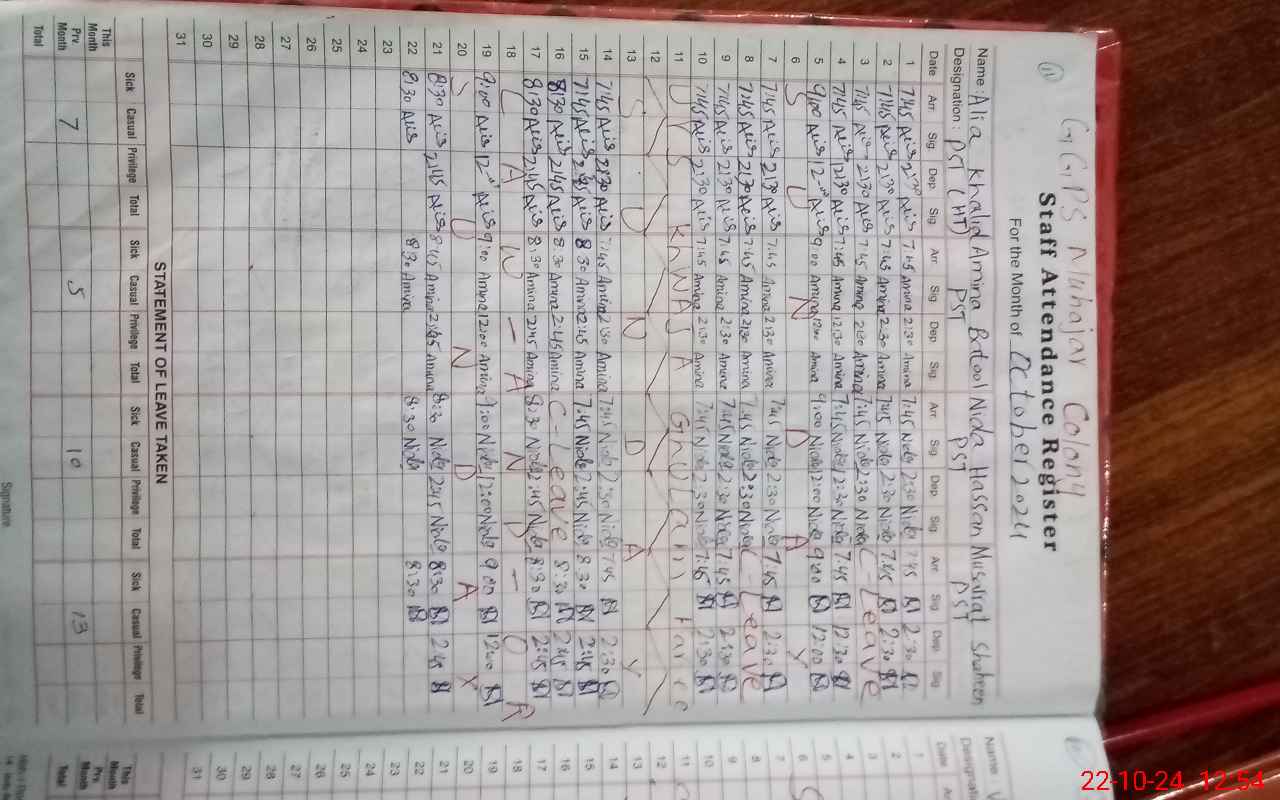 GGPS Muhajar Colony
Staff Attendance Register
For the Month of October 2024
Name: Alia Khalid Amina Batool Nida Hassan Musarrat Shaheen
Designation: PST (HT) PST PST PST
Date Arr. Sig. Dep. Sig. Arr. Sig. Dep. Sig. Arr. Sig. Dep. Sig. Arr. Sig. Dep. Sig.
1 7:45 2:30 7:45 Amina 2:30 Amina 7:45 Nida 2:30 Nida 7:45 2:30
2 7:45 2:30 7:45 Amina 2:30 Amina 7:45 Nida 2:30 Nida 7:45 2:30
3 7:45 2:30 7:45 Amina 2:30 Amina 7:45 Nida 2:30 Nida C-Leave
4 7:45 12:30 7:45 Amina 12:30 Amina 7:45 Nida 2:30 Nida 7:45 12:30
5 9:00 12:00 9:00 Amina 12:00 Amina 9:00 Nida 12:00 Nida 9:00 12:00
6 S U N D A Y
7 7:45 2:30 7:45 Amina 2:30 Amina 7:45 Nida 2:30 Nida 7:45 2:30
8 7:45 2:30 7:45 Amina 2:30 Amina 7:45 Nida 2:30 Nida C-Leave
9 7:45 2:30 7:45 Amina 2:30 Amina 7:45 Nida 2:30 Nida 7:45 2:30
10 7:45 2:30 7:45 Amina 2:30 Amina 7:45 Nida 2:30 Nida 7:45 2:30
11 URS KhWAJA GhULam Faree
12
13 S U N D A Y
14 7:45 2:30 7:45 Amina 2:30 Amina 7:45 Nida 2:30 Nida 7:45 2:30
15 7:45 2:45 8:30 Amina 2:45 Amina 7:45 Nida 2:45 Nida 8:30 2:45
16 8:30 2:45 8:30 Amina 2:45 Amina C-Leave 8:30 2:45
17 8:30 2:45 8:30 Amina 2:45 Amina 8:30 Nida 2:45 Nida 8:30 2:45
18 L A W - A N D - O R
19 9:00 12:00 9:00 Amina 12:00 Amina 9:00 Nida 12:00 Nida 9:00 12:00
20 S U N D A Y
21 8:30 2:45 8:45 Amina 2:45 Amina 8:30 Nida 2:45 Nida 8:30 2:45
22 8:30 8:30 Amina 8:30 Nida 8:30
23
24
25
26
27
28
29
30
31
STATEMENT OF LEAVE TAKEN
Sick Casual Privilege Total Sick Casual Privilege Total Sick Casual Privilege Total Sick Casual Privilege Total
This Month
Prv. Month 7 5 10 13
Total
Signature
Name
Designation
Date
1
2
3
4
5
6 S
7
8
9
10
11
12
13
14
15
16
17
18
19
20
21
22
23
24
25
26
27
28
29
30
31
This Month
Prv. Month
Total
22-10-24 12:54